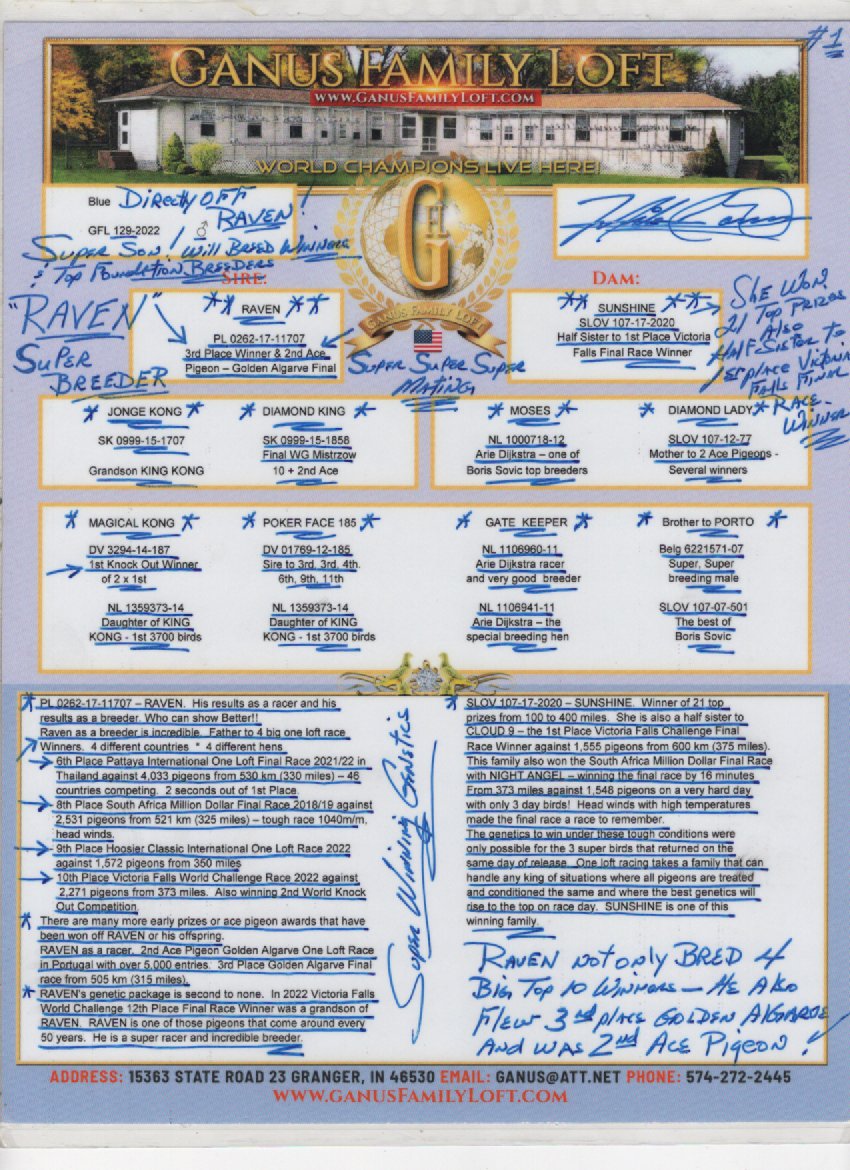 #1
GANUS FAMILY LOFT
WWW.GANUSFAMILYLOFT.COM
WORLD CHAMPIONS LIVE HERE!
Blue Directly OFF RAVEN!
GFL 129-2022 ♂
Super Son! Will Breed Winners
& Top Foundation Breeders
GFL
GANUS FAMILY LOFT
SIRE:
"RAVEN"
Super
Breeder
** RAVEN **
PL 0262-17-11707
3rd Place Winner & 2nd Ace
Pigeon – Golden Algarve Final
Super Super Super
Mating
DAM:
** SUNSHINE **
SLOV 107-17-2020
Half Sister to 1st Place Victoria
Falls Final Race Winner
She Won
21 Top Prizes
Also
Half Sister To
1st place Victoria
Falls Final
Race
Winner
* JONGE KONG *
SK 0999-15-1707
Grandson KING KONG
* DIAMOND KING *
SK 0999-15-1858
Final WG Mistrzow
10 + 2nd Ace
* MOSES *
NL 1000718-12
Arie Dijkstra – one of
Boris Sovic top breeders
* DIAMOND LADY *
SLOV 107-12-77
Mother to 2 Ace Pigeons -
Several winners
* MAGICAL KONG *
DV 3294-14-187
1st Knock Out Winner
of 2 x 1st
NL 1359373-14
Daughter of KING
KONG - 1st 3700 birds
* POKER FACE 185 *
DV 01769-12-185
Sire to 3rd, 3rd, 4th.
6th, 9th, 11th
NL 1359373-14
Daughter of KING
KONG - 1st 3700 birds
* GATE KEEPER *
NL 1106960-11
Arie Dijkstra racer
and very good breeder
NL 1106941-11
Arie Dijkstra – the
special breeding hen
* Brother to PORTO *
Belg 6221571-07
Super, Super
breeding male
SLOV 107-07-501
The best of
Boris Sovic
* PL 0262-17-11707 – RAVEN. His results as a racer and his
results as a breeder. Who can show Better!!
Raven as a breeder is incredible. Father to 4 big one loft race
Winners. 4 different countries * 4 different hens
6th Place Pattaya International One Loft Final Race 2021/22 in
Thailand against 4,033 pigeons from 530 km (330 miles) – 46
countries competing. 2 seconds out of 1st Place.
8th Place South Africa Million Dollar Final Race 2018/19 against
2,531 pigeons from 521 km (325 miles) – tough race 1040m/m,
head winds.
9th Place Hoosier Classic International One Loft Race 2022
against 1,572 pigeons from 350 miles
10th Place Victoria Falls World Challenge Race 2022 against
2,271 pigeons from 373 miles. Also winning 2nd World Knock
Out Competition.
* There are many more early prizes or ace pigeon awards that have
been won off RAVEN or his offspring.
RAVEN as a racer. 2nd Ace Pigeon Golden Algarve One Loft Race
in Portugal with over 5,000 entries. 3rd Place Golden Algarve Final
race from 505 km (315 miles).
* RAVEN's genetic package is second to none. In 2022 Victoria Falls
World Challenge 12th Place Final Race Winner was a grandson of
RAVEN. RAVEN is one of those pigeons that come around every
50 years. He is a super racer and incredible breeder.
Super Winning Genetics
* SLOV 107-17-2020 – SUNSHINE. Winner of 21 top
prizes from 100 to 400 miles. She is also a half sister to
CLOUD 9 – the 1st Place Victoria Falls Challenge Final
Race Winner against 1,555 pigeons from 600 km (375 miles).
This family also won the South Africa Million Dollar Final Race
with NIGHT ANGEL – winning the final race by 16 minutes
From 373 miles against 1,548 pigeons on a very hard day
with only 3 day birds! Head winds with high temperatures
made the final race a race to remember.
The genetics to win under these tough conditions were
only possible for the 3 super birds that returned on the
same day of release. One loft racing takes a family that can
handle any king of situations where all pigeons are treated
and conditioned the same and where the best genetics will
rise to the top on race day. SUNSHINE is one of this
winning family.
Raven not only BRED 4
Big Top 10 Winners – He Also
Flew 3rd place Golden Algarve
And was 2nd Ace Pigeon!
ADDRESS: 15363 STATE ROAD 23 GRANGER, IN 46530 EMAIL: GANUS@ATT.NET PHONE: 574-272-2445
WWW.GANUSFAMILYLOFT.COM